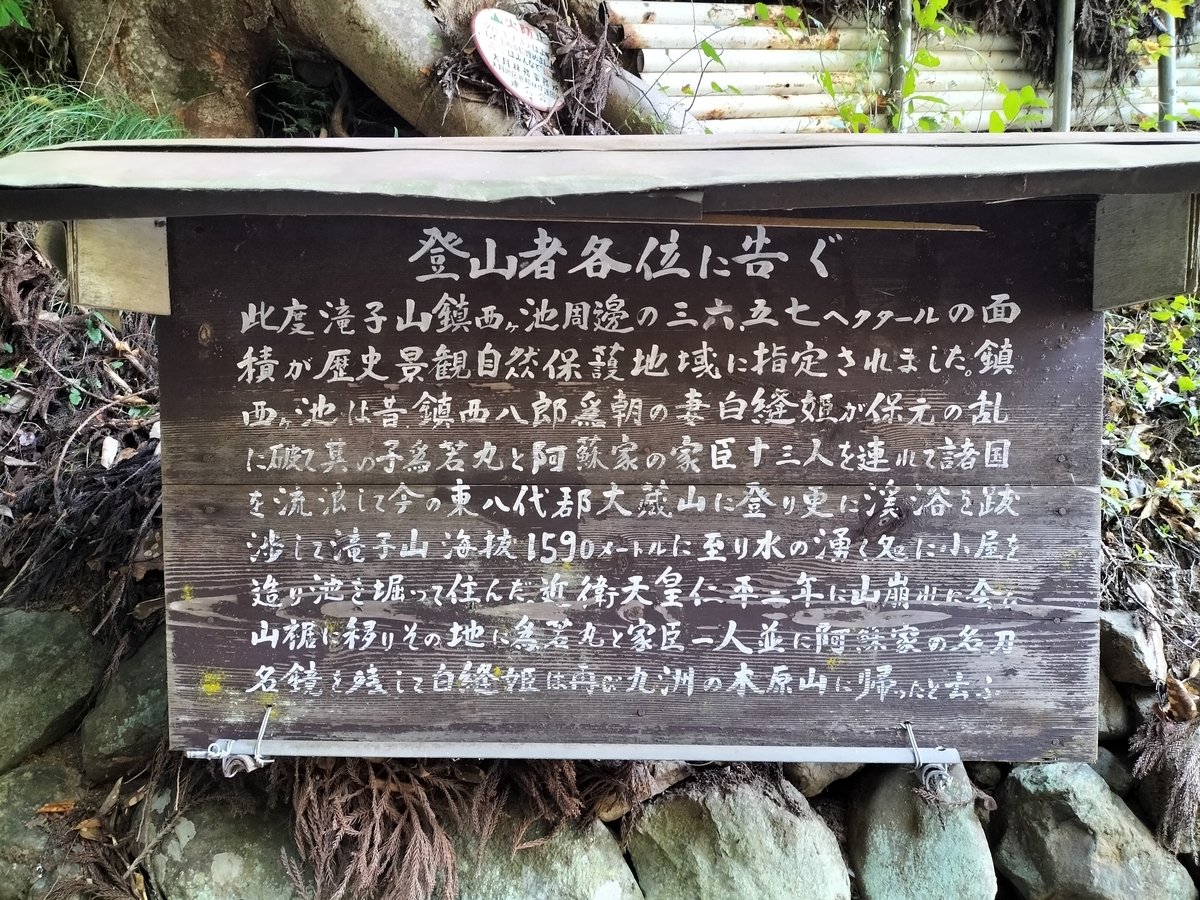 登山者各位に告ぐ
此度滝子山鎮西ヶ池周邊の三六五七ヘクタールの面
積が歴史景観自然保護地域に指定されました。鎮
西ヶ池は昔鎮西八郎爲朝の妻白縫姫が保元の乱
に破て其の子爲若丸と阿蘇家の家臣十三人を連れて諸国
を流浪して今の東八代郡大蔵山に登り更に渓浴を跋
渉して滝子山海抜1590メートルに至り水の湧く処に小屋を
造り池を堀って住んだ近衛天皇仁平二年に山崩れに会い
山裾に移りその地に爲若丸と家臣一人並に阿蘇家の名刀
名鏡を残して白縫姫は再び九洲の木原山に帰ったと云ふ